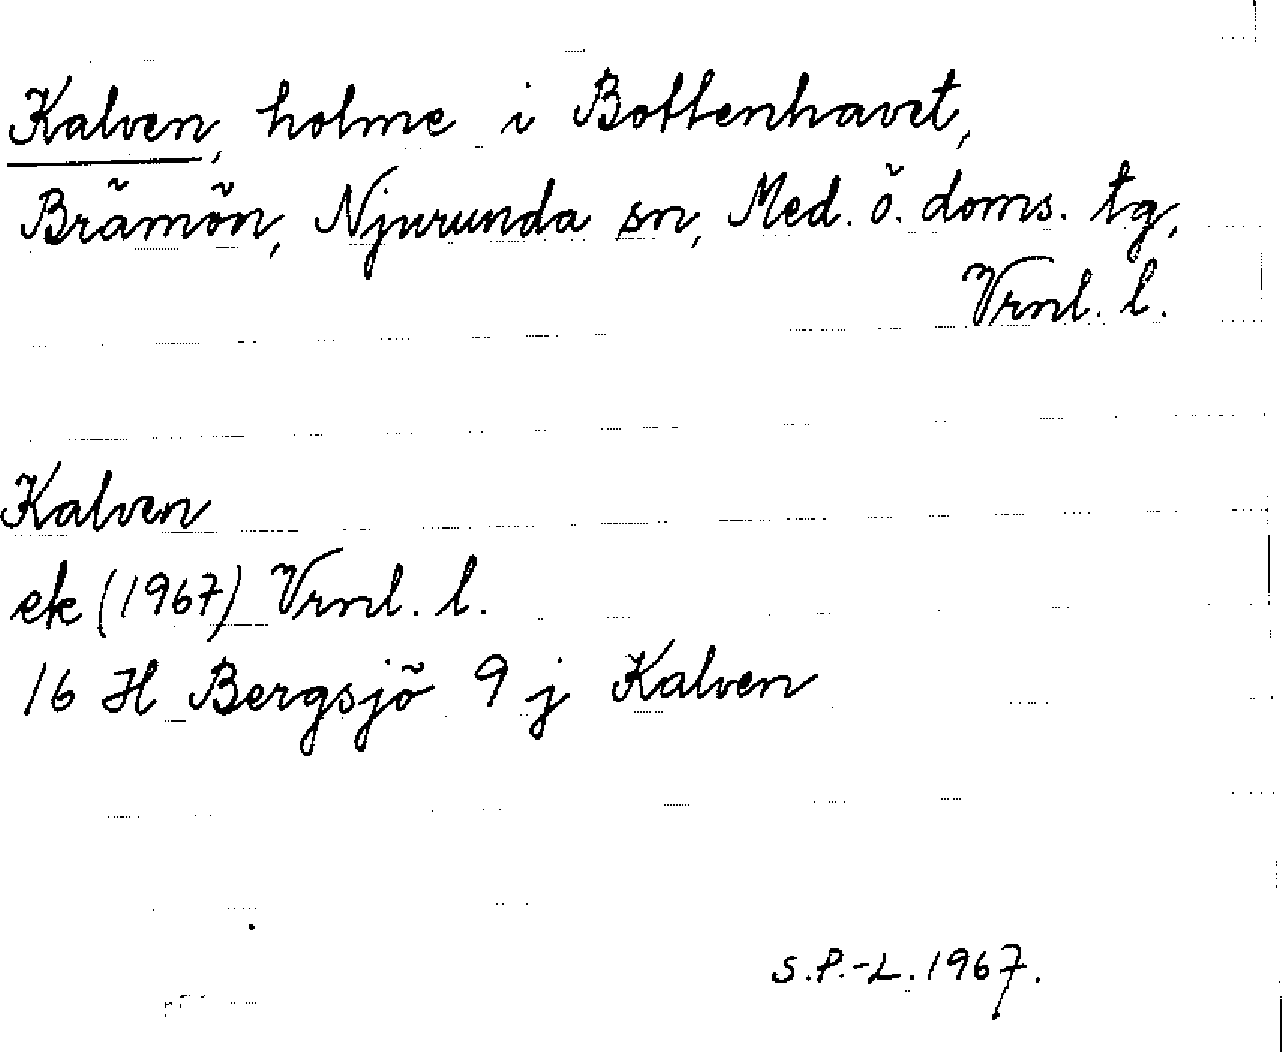 Kalven, holme i Bottenhavet,
Brämön, Njurunda sn, Med. ö. doms. tg,
Vrnl. l.
Kalven
ek (1967) Vrnl. l.
16 H Bergsjö 9 j Kalven
S.P.-L. 1967.